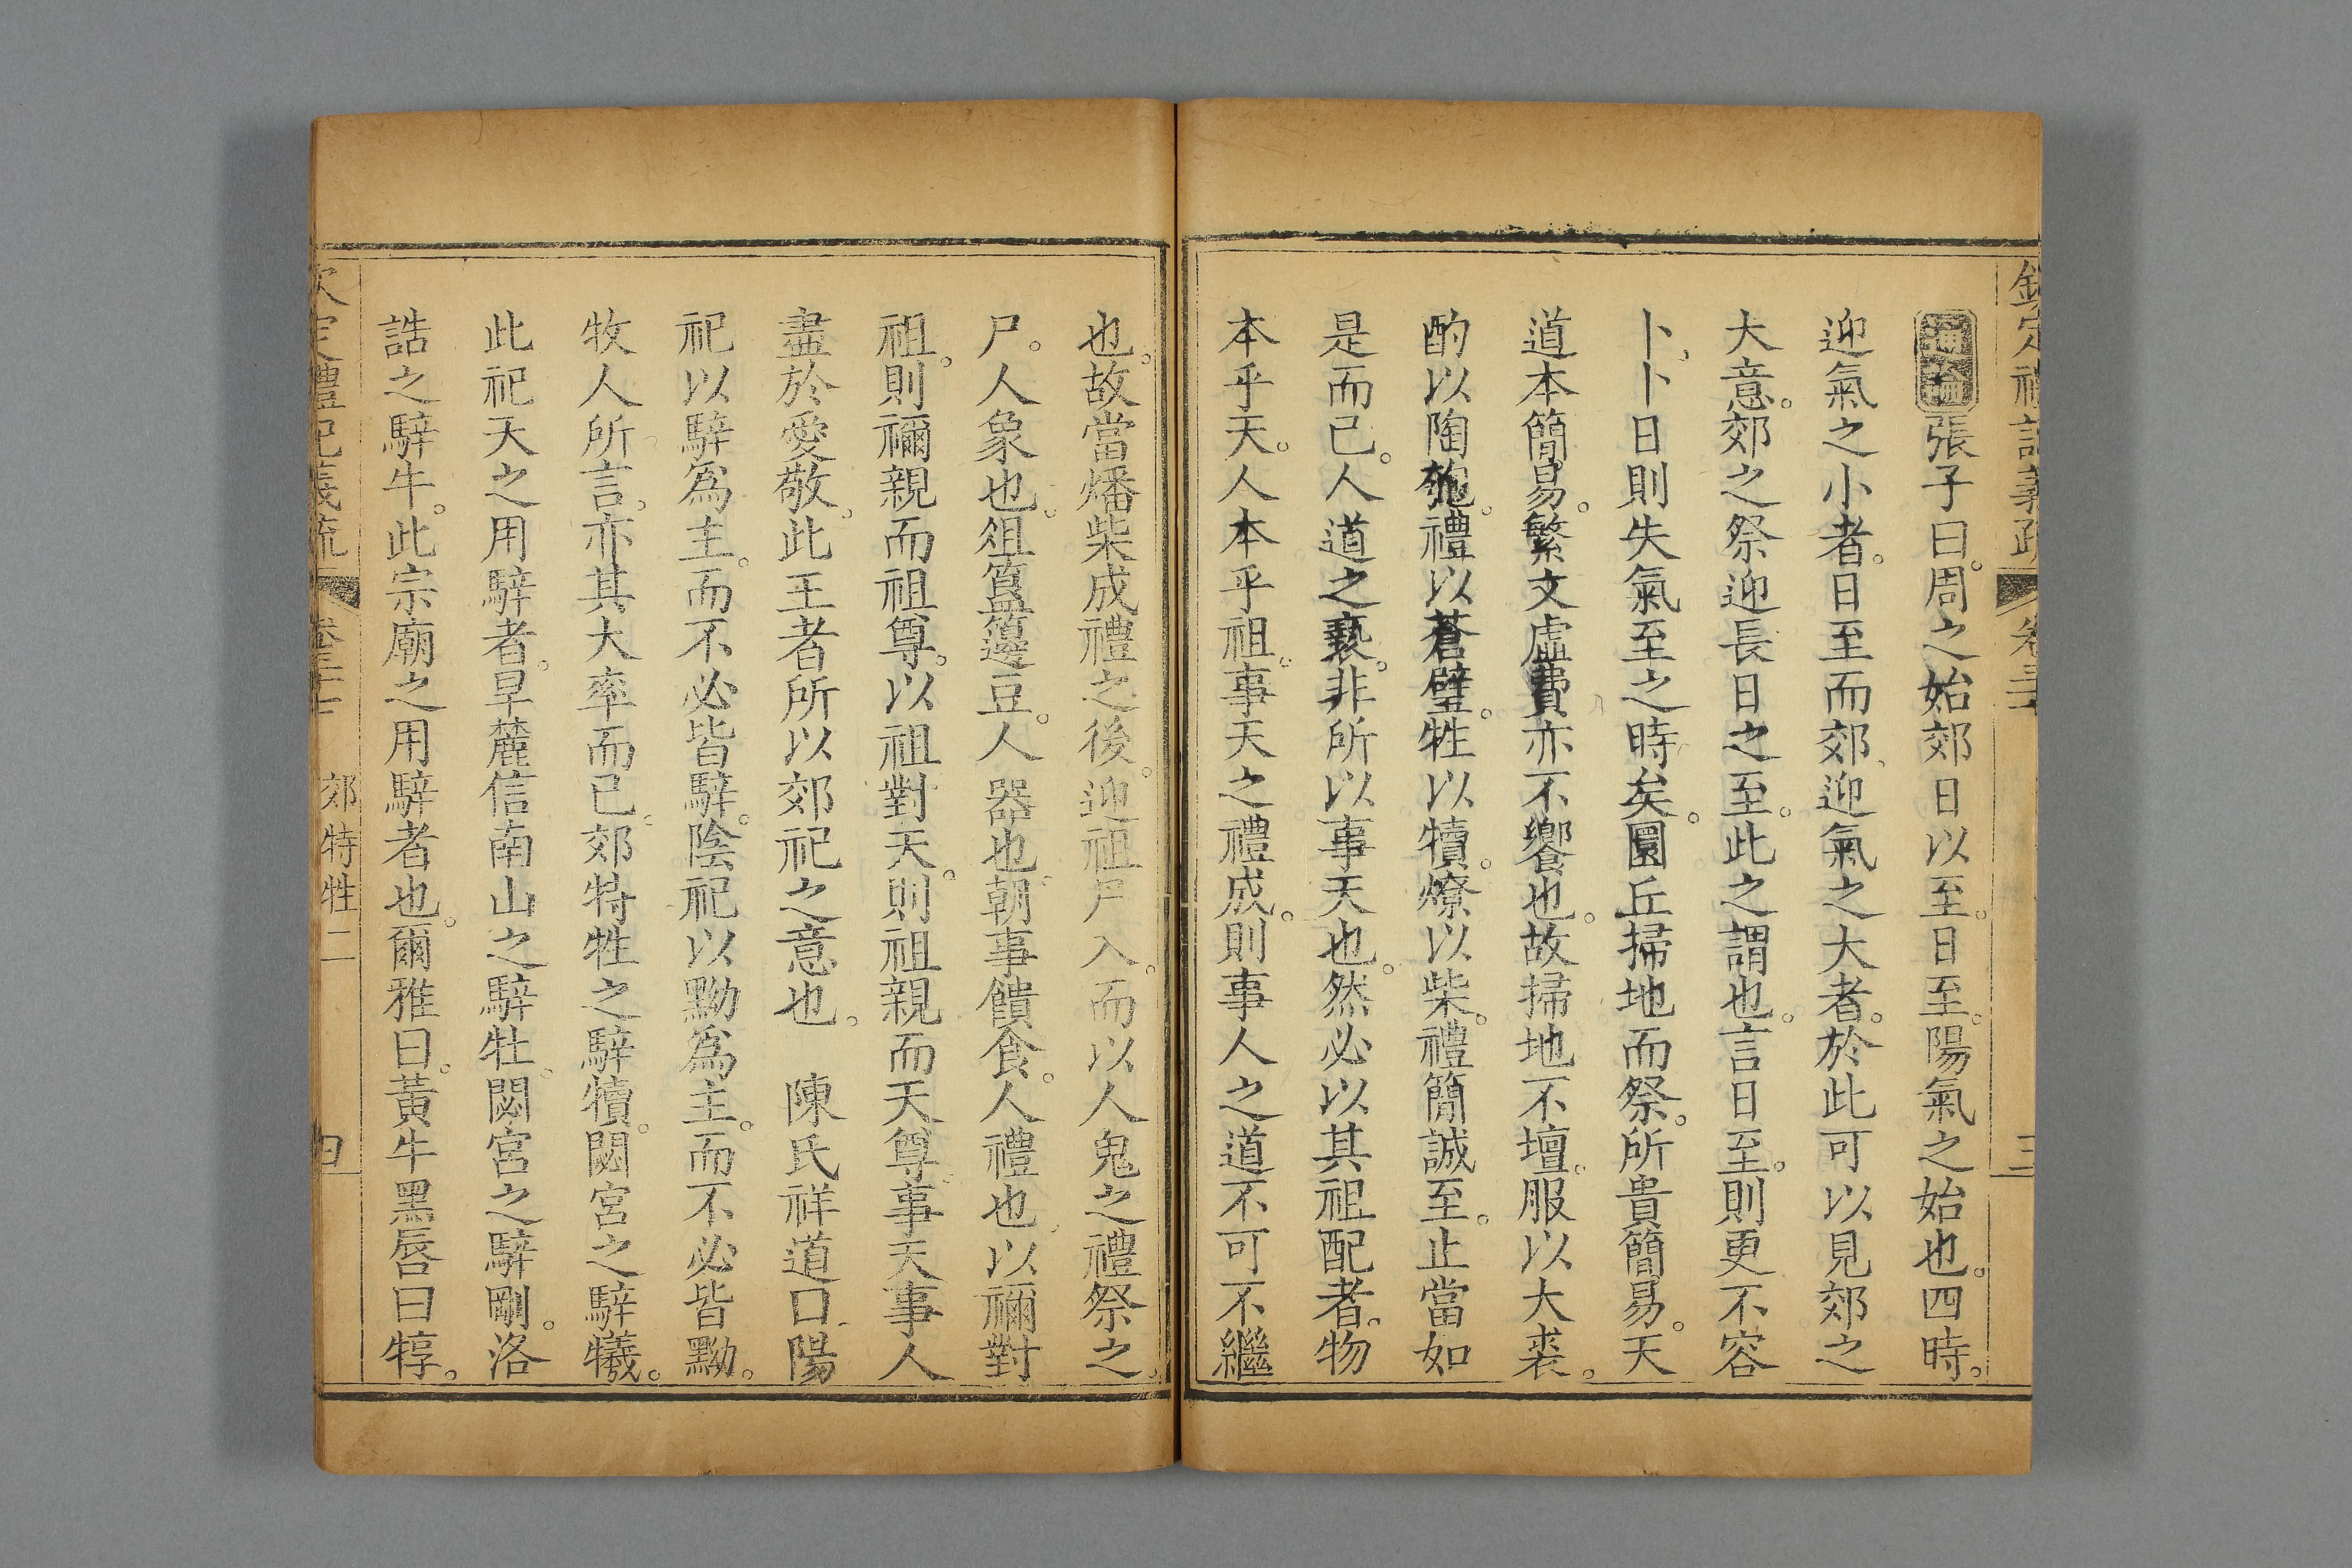 欽定禮記義疏 卷三十 三
通論張子曰。周之始郊日以至。日至。陽氣之始也。四時。
迎氣之小者。日至而郊、迎氣之大者。於此可以見郊之
大意。郊之祭迎長日之至。此之謂也。言日至。則更不容
卜、卜日則失氣至之時矣。圜丘掃地而祭。所貴簡易。天
道本簡易。繁文虛費亦不饗也。故掃地不壇。服以大裘。
酌以陶匏。禮以蒼璧。牲以犢。燎以柴。禮簡誠至。止當如
是而已。人道之褻。非所以事天也。然必以其祖配者。物
本乎天。人本乎祖。事天之禮成。則事人之道不可不繼
也。故當燔柴成禮之後。迎祖尸入。而以人鬼之禮祭之。
尸。人象也。俎簋籩豆。人器也。朝事饋食。人禮也。以禰對
祖。則禰親而祖尊。以祖對天。則祖親而天尊。事天事人
盡於愛敬。此王者所以郊祀之意也。 陳氏祥道曰。陽
祀以騂爲主。而不必皆騂。陰祀以黝爲主。而不必皆黝。
牧人所言。亦其大率而已。郊特牲之騂犢。閟宮之騂犧。
此祀天之用騂者。旱麓信南山之騂牡。閟宮之騂剛。洛
誥之騂牛。此宗廟之用騂者也。爾雅曰。黃牛黑唇曰犉。
欽定禮記義疏 卷三十 郊特牲二 四